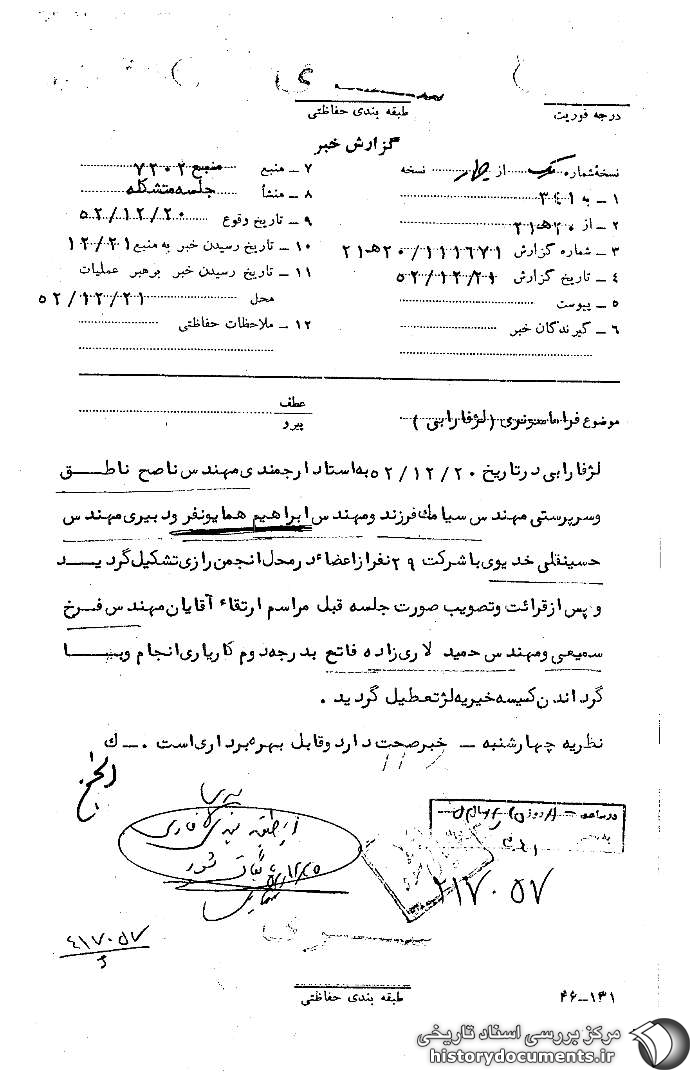 سری
درجه فوریت
طبقه بندی حفاظتی
گزارش خبر
نسخه شماره یک از چهار نسخه
۱ - به ۳۴۱
۲ - از ۲۰هـ۲۱
۳ - شماره گزارش ۲۱هـ۲۰/۱۱۱۶۷۱
۴ - تاریخ گزارش ۵۲/۱۲/۲۱
۵ - پیوست
۶ - گیرندگان خبر
۷ - منبع منبع ۷۲۰۲
۸ - منشأ جلسه متشکله
۹ - تاریخ وقوع ۵۲/۱۲/۲۰
۱۰ - تاریخ رسیدن خبر به منبع ۱۲/۲۱
۱۱ - تاریخ رسیدن خبر برهبر عملیات
محل ۵۲/۱۲/۲۱
۱۲ - ملاحظات حفاظتی
موضوع فراماسونری (لژفارابی)
عطف
پیرو
لژفارابی درتاریخ ۵۲/۱۲/۲۰ به استاد ارجمندی مهندس ناصح ناطق
وسرپرستی مهندس سیامک فرزند ومهندس ابراهیم همایونفر ودبیری مهندس
حسینقلی خدیوی با شرکت ۲۹ نفراز اعضاء درمحل انجمن رازی تشکیل گردید
و پس ازقرائت وتصویب صورت جلسه قبل مراسم ارتقاء آقایان مهندس فرخ
سمیعی ومهندس حمید لاری زاده فاتح بدرجه دوم کاریاری انجام وبا
گرداندن کیسه خیریه لژتعطیل گردید .
نظریه چهارشنبه - خبرصحت دارد وقابل بهره برداری است . - ک
۲۱۷۰۵۷
سری
۴۱۷۰۵۷
طبقه بندی حفاظتی
۴۶-۱۳۱
مرکز بررسی اسناد تاریخی
historydocuments.ir